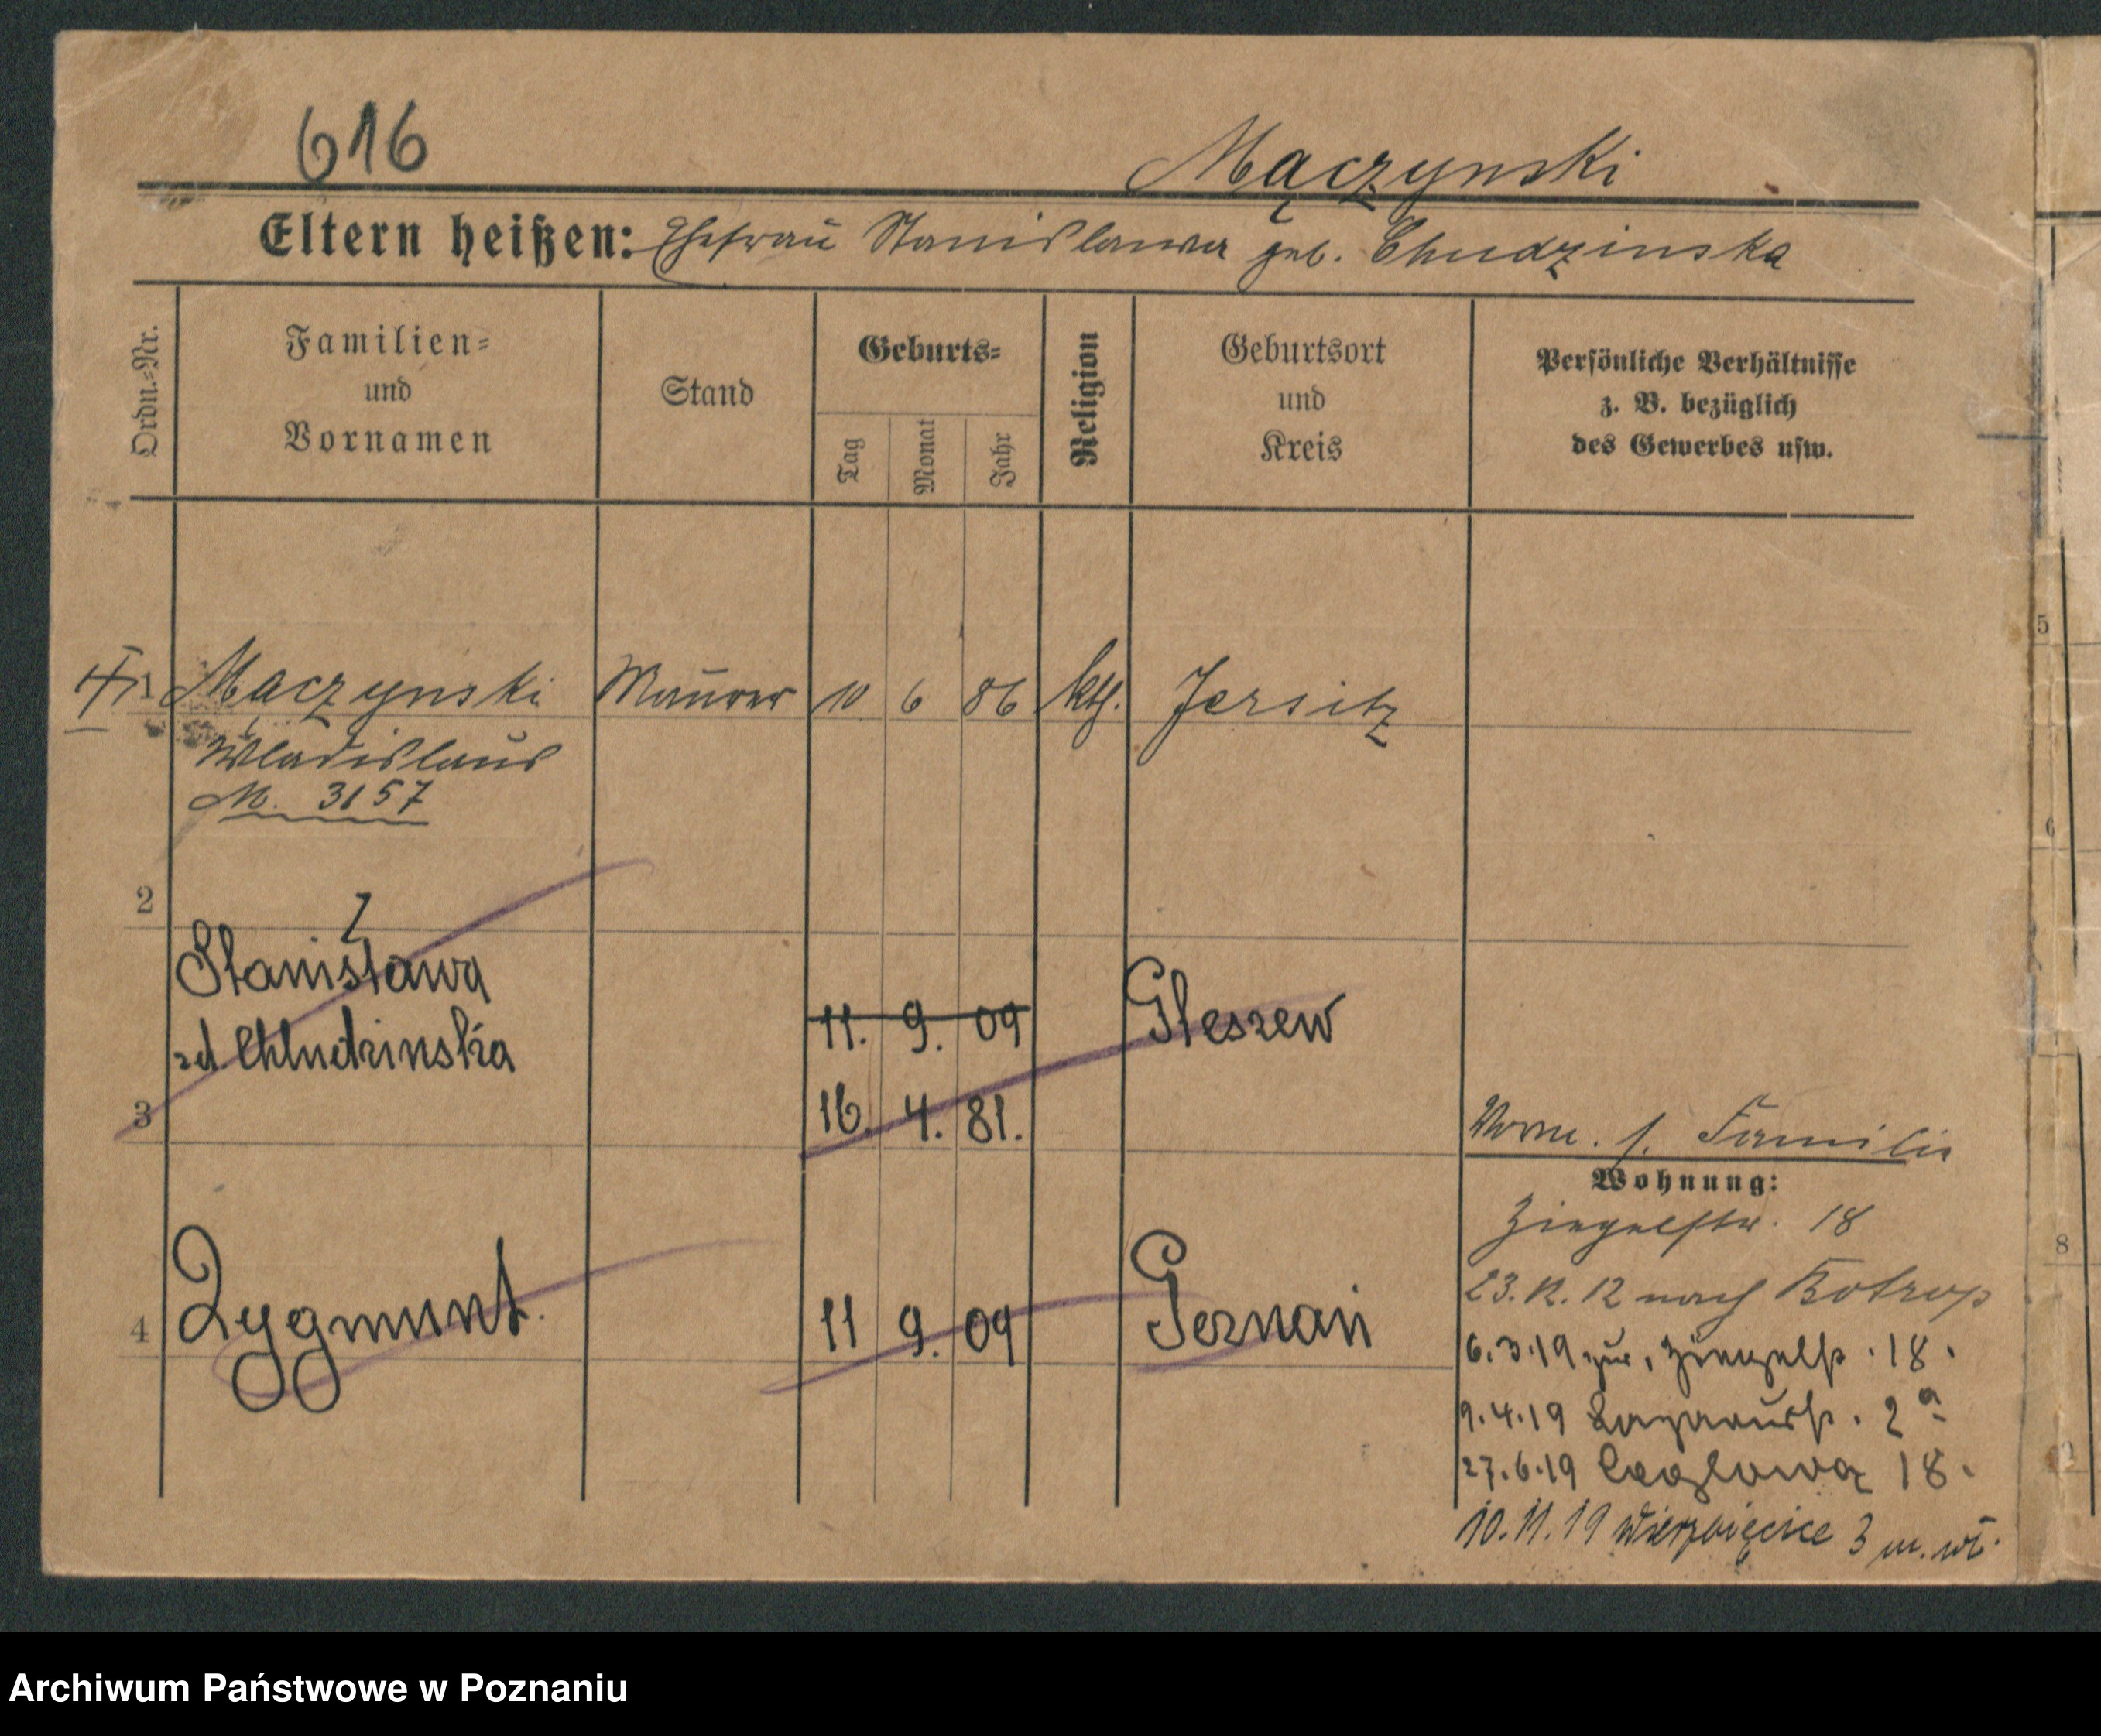 616
Mączynski
Eltern heißen: Ehefrau Stanislawa geb. Chudzinska
Ordn.-Nr.
Familien-
und
Vornamen
Stand
Geburts-
Tag
Monat
Jahr
Religion
Geburtsort
und
Kreis
Persönliche Verhältnisse
z. B. bezüglich
des Gewerbes usw.
1 Mączynski Maurer 10 6 86 kth. Jersitz
Wladislaus
M. 3157
2
Stanisława
zd. Chludzinska
11. 9. 09
Pleszew
3
16. 4. 81.
s. Familie
Wohnung:
Ziegelstr. 18
4 Zygmunt. 11 9. 09 Poznań
23.12.12 nach Bottrop
6.3.19 zur. Ziegelstr. 18.
9.4.19 Lazarusstr. 2a
27.6.19 Ceglowa 18.
10.11.19 Wierzbięcice 3 m. wł.
5
8
Archiwum Państwowe w Poznaniu